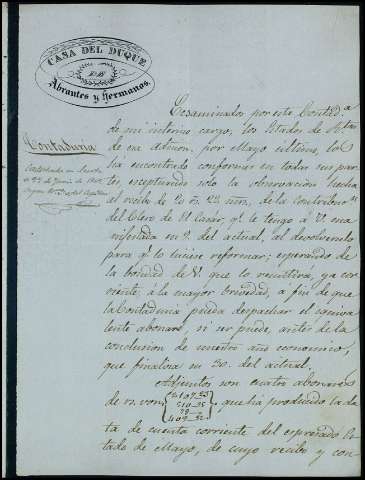 CASA DEL DUQUE
DE
Abrantes y Hermanos.
Contaduria
Contestada en
Ecsaminados por esta Contad.a
de mi interino cargo, los Estados de
de esa admon. por Mayo último, los
ha encontrado conformes en todas sus par
tes, esceptuando solo la observacion hecha
al recibo de 20 rs. 22 mrs. de la Contribu.on
del Clero de El Casar, q.e le tengo a V. ma
nifestada en 9. del actual, al devolverselo
para q.e lo hiciese reformar; esperando de
la bondad de V. que lo remitirá, ya cor
riente, á la mayor brevedad, a fin de que
la Contaduria pueda despachar el equiva
lente abonare, si ser puede, antes de la
conclusion de nuestro año economico,
que finaliza en 30. del actual.
Adjuntos son cuatro abonarés
de rs. von
510..25
que ha producido la da
ta de cuenta corriente del espresado Es
tado de Mayo, de cuyo recibo y con